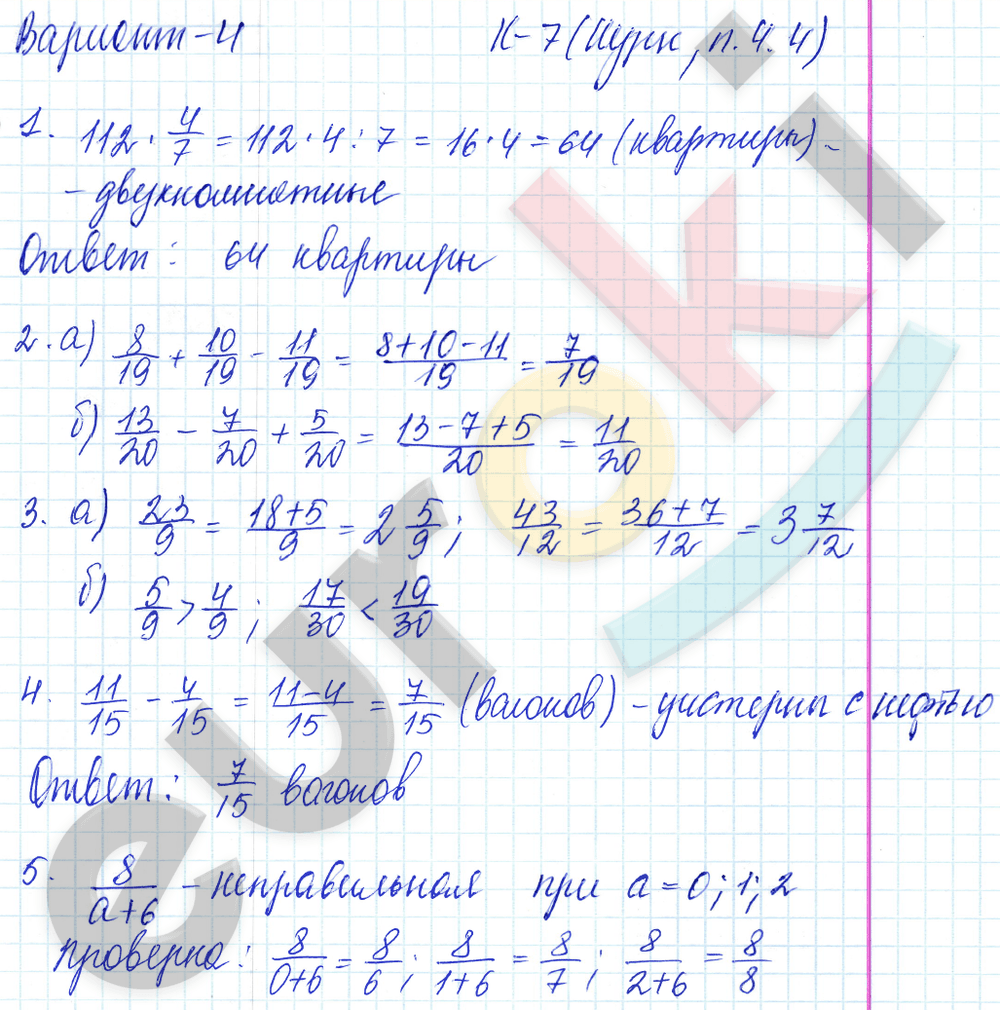 Вариант-4 К-7 (Нурк, п. 4. 4)
1. 112 · 4/7 = 112 · 4 : 7 = 16 · 4 = 64 (квартиры) -
- двухкомнатные
Ответ: 64 квартиры
2. а) 8/19 + 10/19 - 11/19 = (8+10-11)/19 = 7/19
б) 13/20 - 7/20 + 5/20 = (13-7+5)/20 = 11/20
3. а) 23/9 = (18+5)/9 = 2 5/9; 43/12 = (36+7)/12 = 3 7/12
б) 5/9 > 4/9; 17/30 < 19/30
4. 11/15 - 4/15 = (11-4)/15 = 7/15 (вагонов) - цистерны с нефтью
Ответ: 7/15 вагонов
5. 8/(а+6) - неправильная при а = 0; 1; 2
проверка: 8/(0+6) = 8/6; 8/(1+6) = 8/7; 8/(2+6) = 8/8
euroki